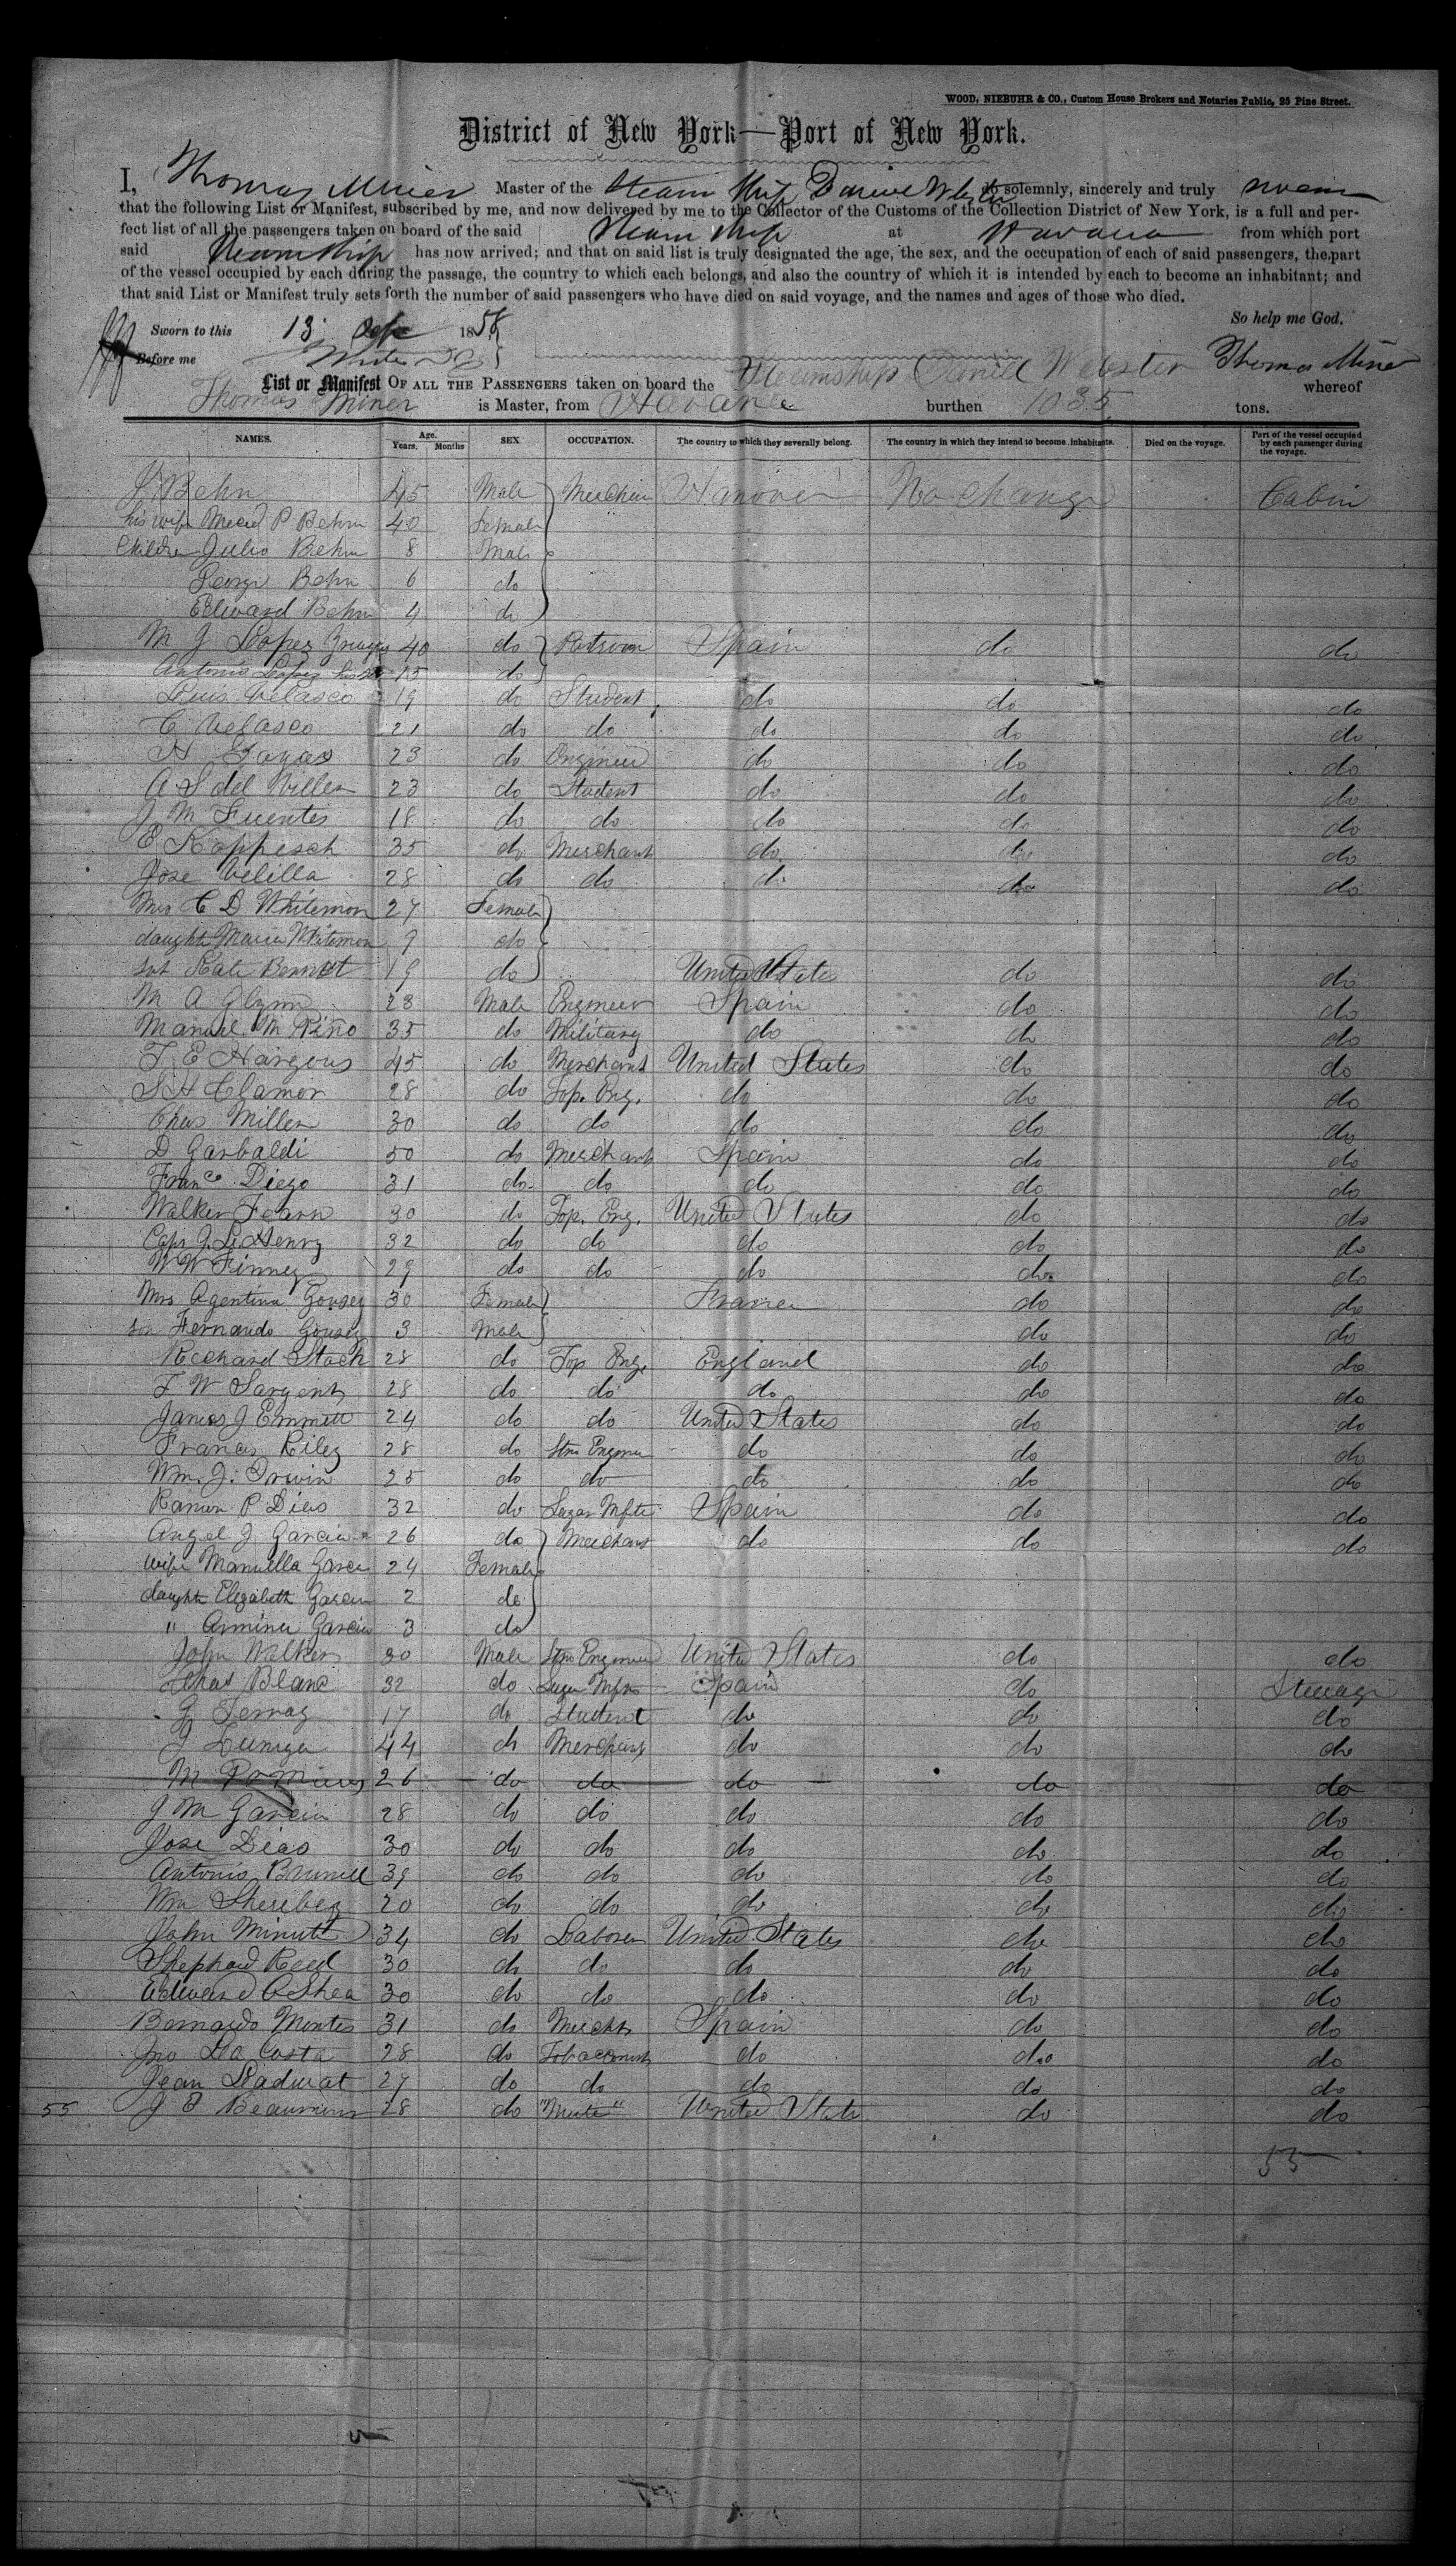 WOOD, NIEBUHR & CO., Custom House Brokers and Notaries Public, 25 Pine Street.
District of New York—Port of New York.
I, Thomas Miner Master of the Steam Ship Daniel Webster do solemnly, sincerely and truly swear
that the following List or Manifest, subscribed by me, and now delivered by me to the Collector of the Customs of the Collection District of New York, is a full and per-
fect list of all the passengers taken on board of the said Steam Ship at Havana from which port
said Steamship has now arrived; and that on said list is truly designated the age, the sex, and the occupation of each of said passengers, the part
of the vessel occupied by each during the passage, the country to which each belongs, and also the country of which it is intended by each to become an inhabitant; and
that said List or Manifest truly sets forth the number of said passengers who have died on said voyage, and the names and ages of those who died.
So help me God.
Sworn to this 13 1858
Before me Thomas Miner
List or Manifest OF ALL THE PASSENGERS taken on board the Steamship Daniel Webster whereof
Thomas Miner is Master, from Havana burthen 1035 tons.
NAMES. Age. Years. Months SEX OCCUPATION. The country to which they severally belong. The country in which they intend to become inhabitants. Died on the voyage. Part of the vessel occupied by each passenger during the voyage.
Behn 45 Male Hanover No change Cabin
his wife P Behn 40 Female
Children Julio Behn 8 Male
George Behn 6 do
Edward Behn 4 do
M J Lopez 40 do Spain do do
Antonio Lopez his 15 do
Luis Velasco 19 do Student do do do
C Velasco 21 do do do do do
H 23 do Engineer do do do
A S del Villen 23 do Student do do do
J M Fuentes 18 do do do do do
E Koppisch 35 do Merchant do do do
Jose Velilla 28 do do do do do
Mrs C D Whitemon 27 Female
daught Maria Whitemon 9 do
svt Kate Bennet 19 do United States do do
M A Glynn 23 Male Engineer Spain do do
Manuel M Niño 35 do Military do do do
T E Hargous 45 do Merchant United States do do
S H Clamor 28 do Top. Eng. do do do
Chas Miller 30 do do do do do
D Garbaldi 50 do Merchant Spain do do
Franco Diego 31 do do do do do
Walker Fearn 30 do Top. Eng. United States do do
Capt J. L. Henry 32 do do do do do
W W Finney 29 do do do do do
Mrs Agentina 30 Female France do do
son Fernando 3 Male do do
Richard Stack 28 do Top Eng. England do do
F W Sargent 28 do do do do do
James J Emmett 24 do do United States do do
Francis Riley 28 do Stm Engineer do do do
Wm. J. Irwin 25 do do do do do
Ramon P Dias 32 do Sugar Mftr Spain do do
Angel J Garcia 26 do Merchant do do do
wife Manuella Garcia 24 Female
daught Elizabeth Garcia 2 do
" Armina Garcia 3 do
John Walker 30 Male Stm Engineer United States do do
Blanc 32 do Sugar Mftr Spain do Steerage
G 17 do Student do do do
J 44 do Merchant do do do
M 26 do do do do do
J M Garcia 28 do do do do do
Jose Dias 30 do do do do do
Antonio 39 do do do do do
Wm 20 do do do do do
John Minutt 34 do Laborer United States do do
Shephard Reed 30 do do do do do
Edward O'Shea 30 do do do do do
Bernardo Montes 31 do Mercht Spain do do
Jno Da Costa 28 do Tobacconist do do do
Jean 27 do do do do do
55 J 28 do "Mate" United States do do
55